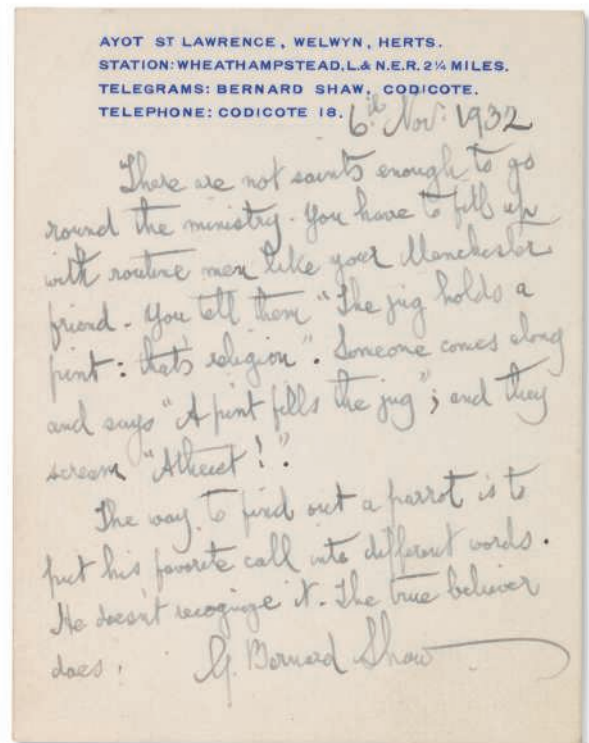 AYOT ST LAWRENCE, WELWYN, HERTS.
STATION: WHEATHAMPSTEAD, L.& N.E.R. 2¼ MILES.
TELEGRAMS: BERNARD SHAW, CODICOTE.
TELEPHONE: CODICOTE 18.
6th Nov: 1932
There are not saints enough to go
round the ministry. You have to fill up
with routine men like your Manchester
friend. You tell them "The jug holds a
pint: thats religion". Someone comes along
and says "A pint fills the jug"; and they
scream "Atheist!".
The way to find out a parrot is to
put his favorite call into different words.
He doesnt recognize it. The true believer
does.
G. Bernard Shaw